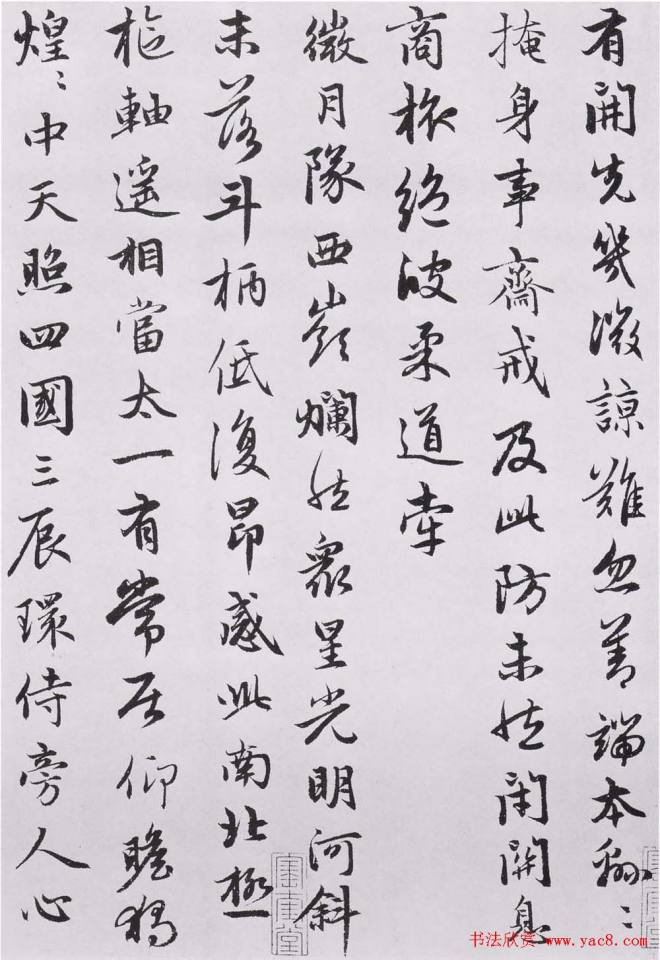 有開先幾微諒難忽善端本綿〻
掩身事齋戒及此防未然閉關息
商旅絕彼柔道牽
微月隊西嶺爛然衆星光明河斜
未落斗柄低復昂感此南北極
樞軸遥相當太一有常居仰瞻獨
煌〻中天照四國三辰環侍旁人心
书法欣赏 www.yac8.com